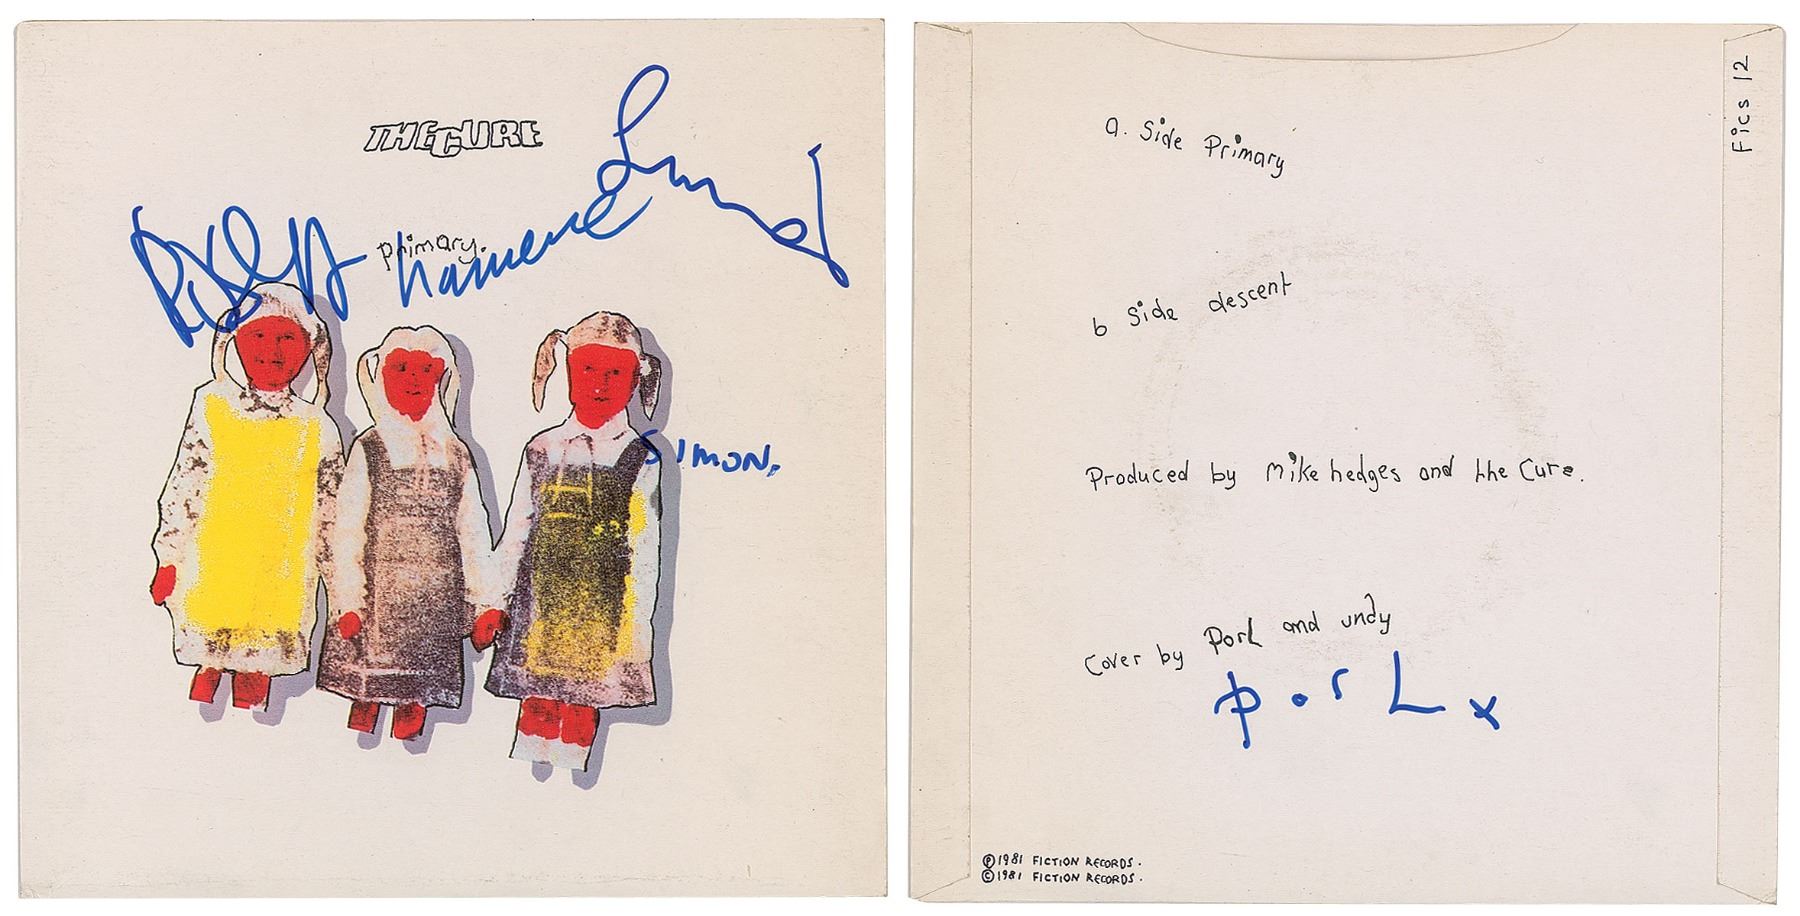 THE CURE
primary.
SIMON.
Fics 12
a. Side Primary
b Side descent
Produced by Mike hedges and the Cure.
Cover by porl and undy
porl x
Ⓟ1981 FICTION RECORDS.
©1981 FICTION RECORDS.